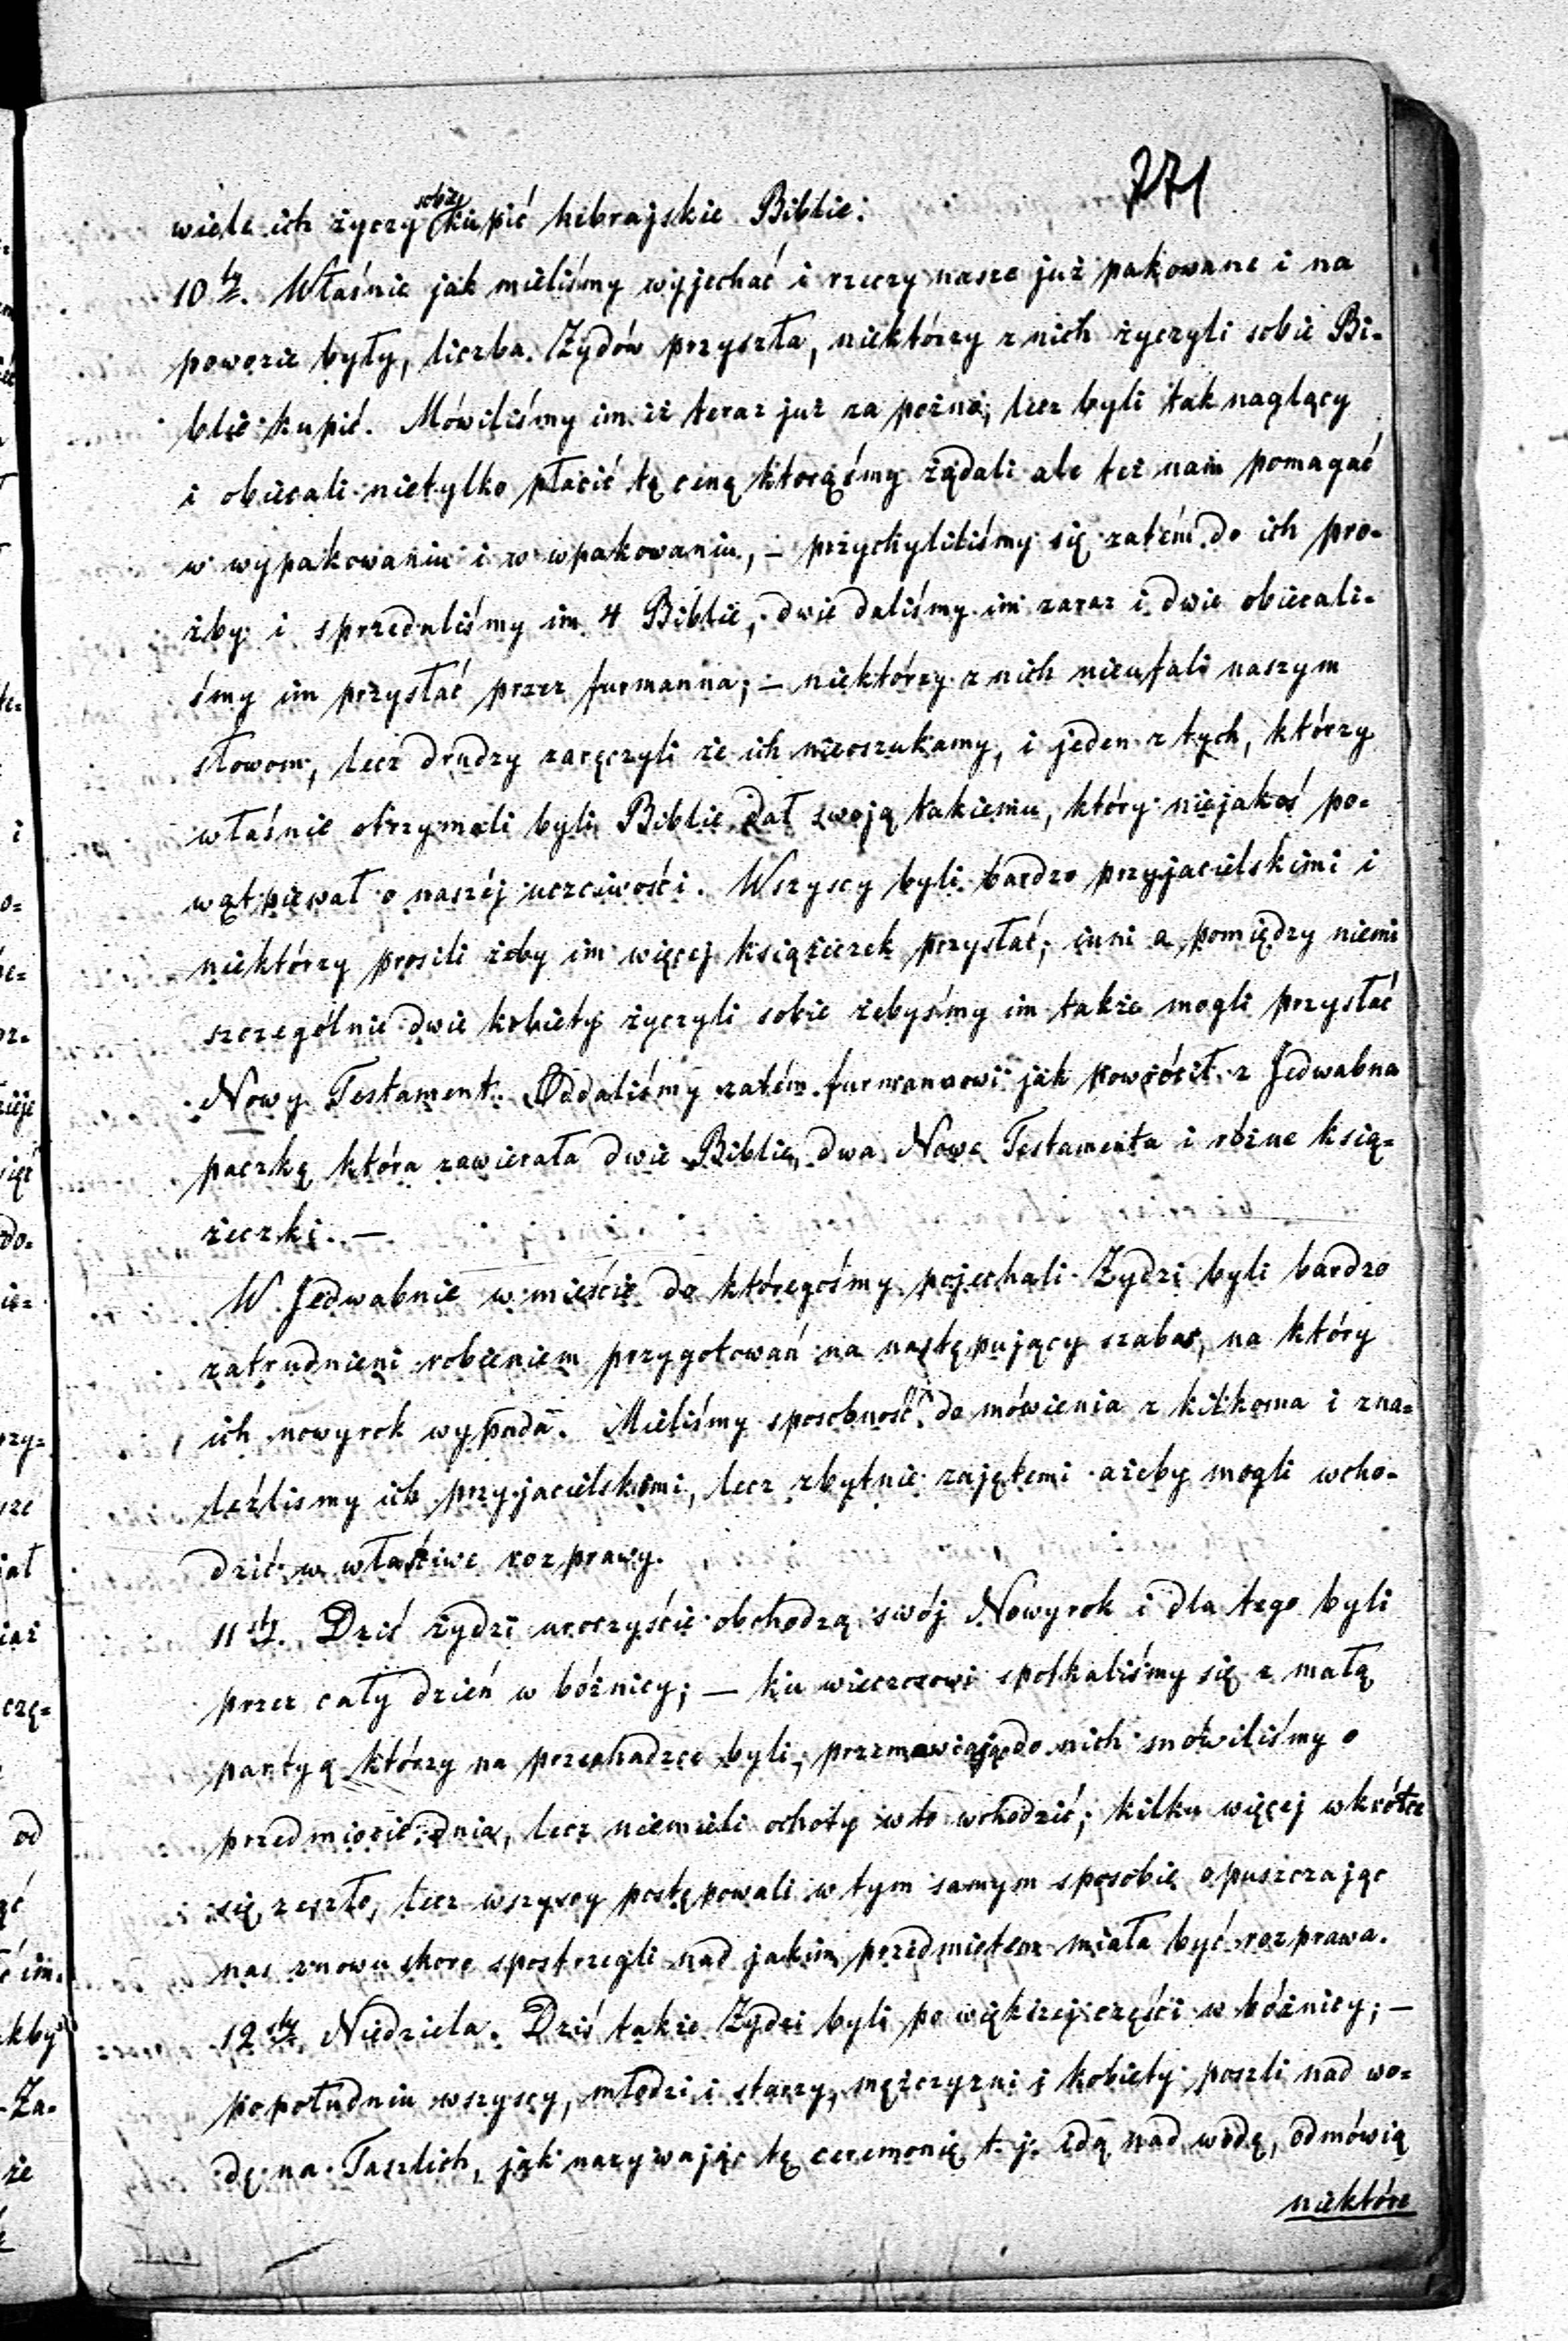 271
wiele ich życzy sobie kupić hebrajskie Biblie.
10 ty. Właśnie jak mieliśmy wyjechać i rzeczy nasze już pakowane i na
powozie były, liczba Żydów przyszła, niektórzy z nich życzyli sobie Bi-
blie kupić. Mówiliśmy im iż teraz już za pożno, lecz byli tak naglący
i obiecali nietylko płacić tę cenę którąśmy żądali ale też nam pomagać
w wypakowaniu i w wpakowaniu, – przychyliliśmy się zatém do ich pro-
źby i sprzedaliśmy im 4 Biblie, dwie daliśmy im zaraz i dwie obiecali-
śmy im przysłać przez furmanna; – niektórzy z nich nieufali naszym
słowom, lecz drudzy zaręczyli że ich nieoszukamy, i jeden z tych, którzy
właśnie otrzymali byli Biblie dał swoją takiemu, który niejakoś po-
wątpiewał o naszéj uczciwości. Wszyscy byli bardzo przyjacielskimi i
niektórzy prosili żeby im więcej książeczek przysłać; inni a pomiędzy niemi
szczególnie dwie kobiety życzyli sobie żebyśmy im także mogli przysłać
Nowy Testament. Oddaliśmy zatém furmanowi jak powrócił z Jedwabna
paczkę która zawierała dwie Biblie, dwa Nowe Testamenta i różne ksią-
żeczki. –
W Jedwabnie w mieście do któregośmy pojechali Żydzi byli bardzo
zatrudnieni robieniem przygotowań na następujący szabas, na który
ich nowyrok wypada. Mieliśmy sposobność do mówienia z kilkoma i zna-
leźlismy ich przyjacielskimi, lecz zbytnie zajętemi ażeby mogli wcho-
dzić w właściwe rozprawy.
11 ty. Dziś żydzi uroczyście obchodzą swój Nowyrok i dla tego byli
przez cały dzień w bóżnicy; – ku wieczorowi spotkaliśmy się z małą
partyą którzy na przechadzce byli, przemawiając do nich mówiliśmy o
przedmiocie dnia, lecz niemieli ochoty w to wchodzić; kilku więcej wkrótce
się zeszło, lecz wszyscy postępowali w tym samym sposobie opuszczając
nas znowu skoro spostrzegli nad jakim przedmiotem miała być rozprawa.
12 ty Niedziela. Dziś także Żydzi byli po większej części w bóżnicy; –
popołudniu wszyscy, młodzi i starzy, mężczyzni i kobiety poszli nad wo-
dę na Taszlich, jak nazywając tę ceremonię t. j. idą nad wodę, odmówią
niektóre